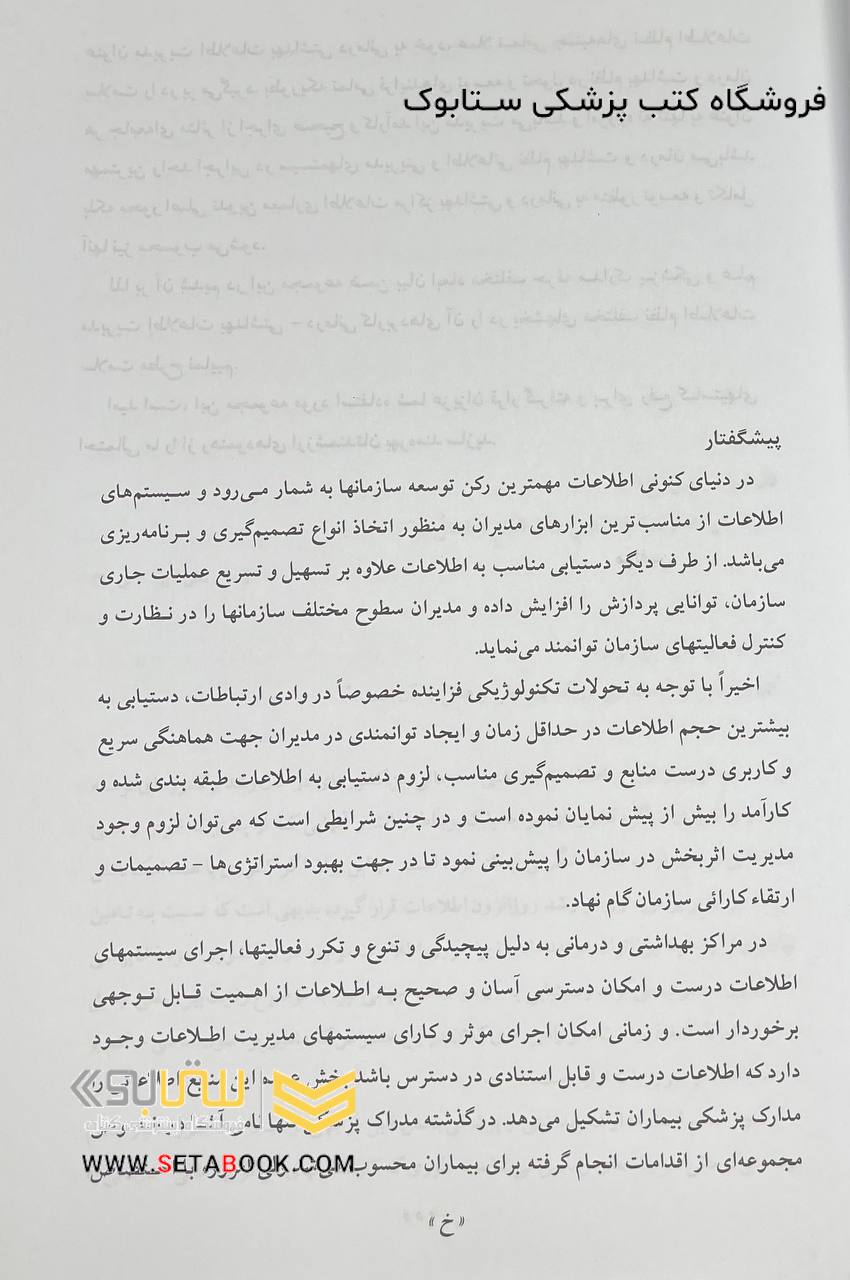 فروشگاه کتب پزشکی ستابوک
پیشگفتار
در دنیای کنونی اطلاعات مهمترین رکن توسعه سازمانها به شمار می‌رود و سیستم‌های
اطلاعات از مناسب‌ترین ابزارهای مدیران به منظور اتخاذ انواع تصمیم‌گیری و برنامه‌ریزی
می‌باشد. از طرف دیگر دستیابی مناسب به اطلاعات علاوه بر تسهیل و تسریع عملیات جاری
سازمان، توانایی پردازش را افزایش داده و مدیران سطوح مختلف سازمانها را در نظارت و
کنترل فعالیتهای سازمان توانمند می‌نماید.
اخیراً با توجه به تحولات تکنولوژیکی فزاینده خصوصاً در وادی ارتباطات، دستیابی به
بیشترین حجم اطلاعات در حداقل زمان و ایجاد توانمندی در مدیران جهت هماهنگی سریع
و کاربری درست منابع و تصمیم‌گیری مناسب، لزوم دستیابی به اطلاعات طبقه بندی شده و
کارآمد را بیش از پیش نمایان نموده است و در چنین شرایطی است که می‌توان لزوم وجود
مدیریت اثربخش در سازمان را پیش‌بینی نمود تا در جهت بهبود استراتژی‌ها – تصمیمات و
ارتقاء کارائی سازمان گام نهاد.
در مراکز بهداشتی و درمانی به دلیل پیچیدگی و تنوع و تکرر فعالیتها، اجرای سیستمهای
اطلاعات درست و امکان دسترسی آسان و صحیح به اطلاعات از اهمیت قابل توجهی
برخوردار است. و زمانی امکان اجرای موثر و کارای سیستمهای مدیریت اطلاعات وجود
دارد که اطلاعات درست و قابل استنادی در دسترس باشد بخش این منابع را
مدارک پزشکی بیماران تشکیل می‌دهد. در گذشته مدراک
مجموعه‌ای از اقدامات انجام گرفته برای بیماران محسوب
ستابوک
فروشگاه اینترنتی کتاب
WWW.SETABOOK.COM
« خ »